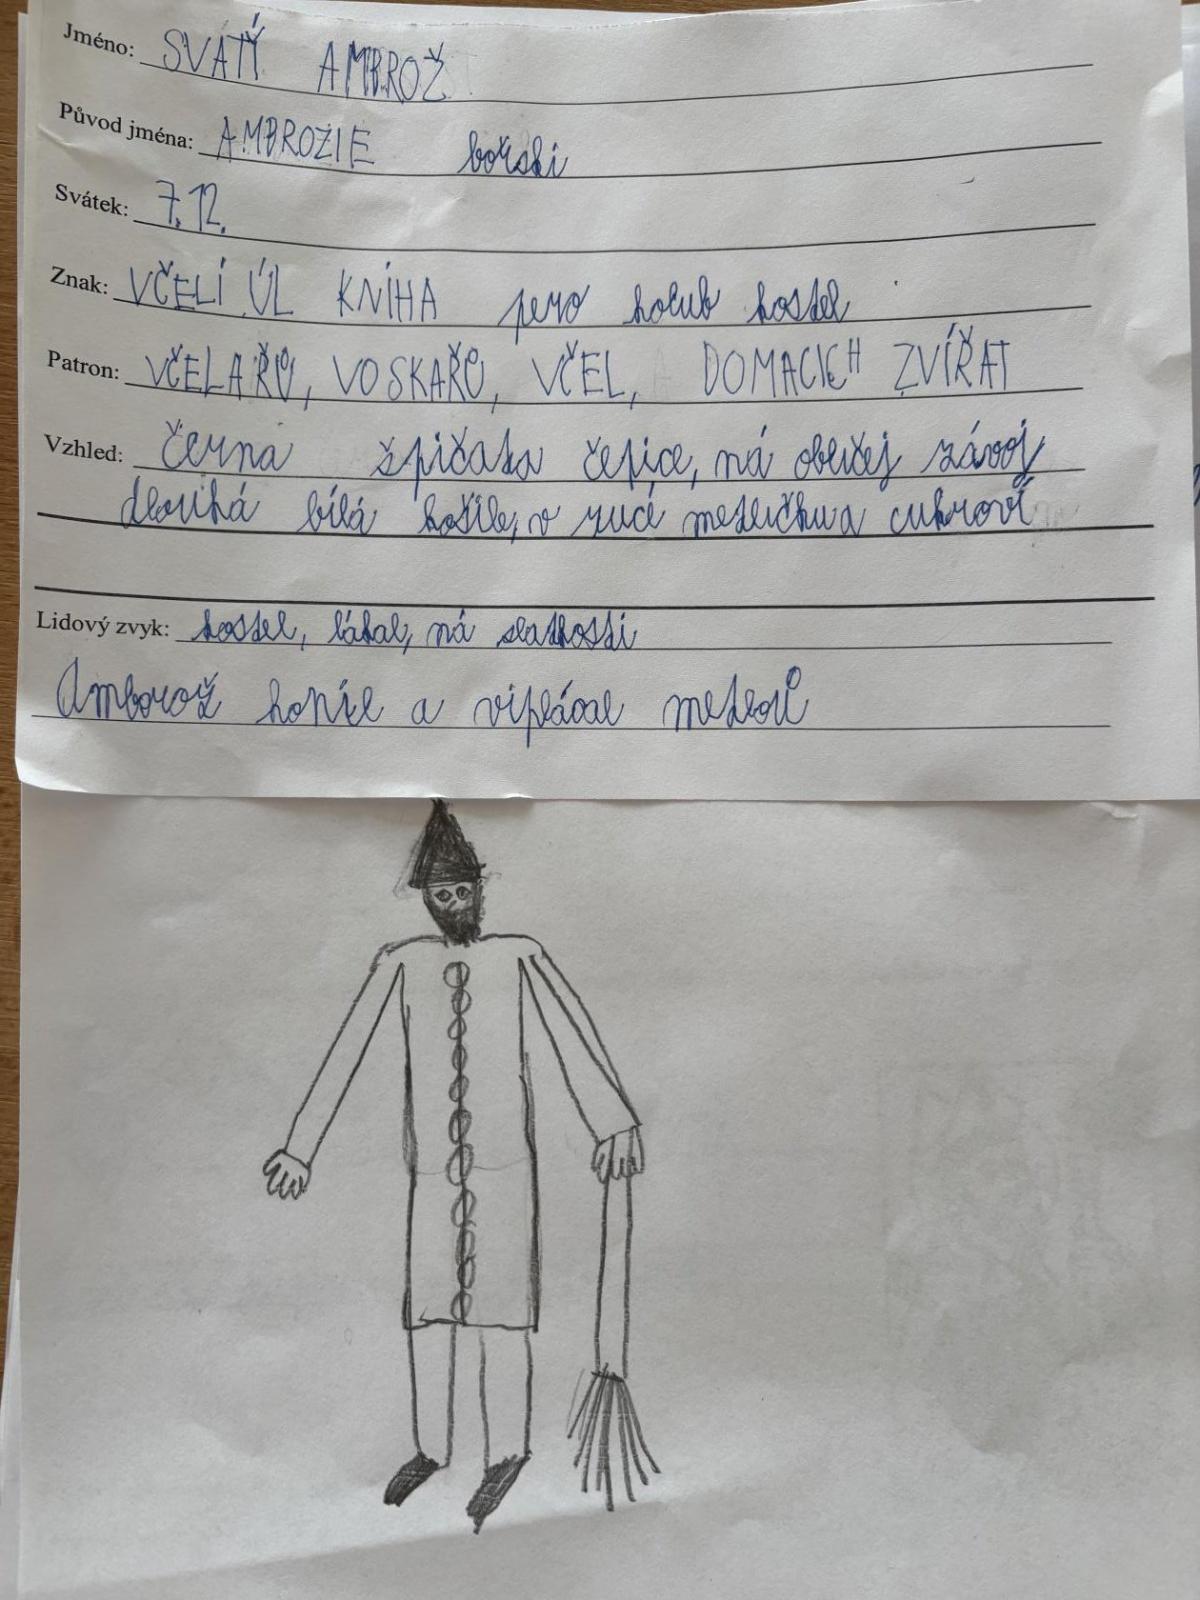 Jméno: SVÁTÝ AMBROŽ
Původ jména: AMBROZIE božski
Svátek: 7.12.
Znak: VČELÍ ÚL KNÍHA pero holub kostel
Patron: VČELAŘŮ, VOSKAŘŮ, VČEL, DOMACICH ZVÍŘAT
Vzhled: černa špičata čepice, ná obličej závoj
dlouhá bílá košile, v rucé metličku a cukroví
Lidový zvyk: kostel, lákal, ná slatkosti
Ambrož honíl a viplácal metlou